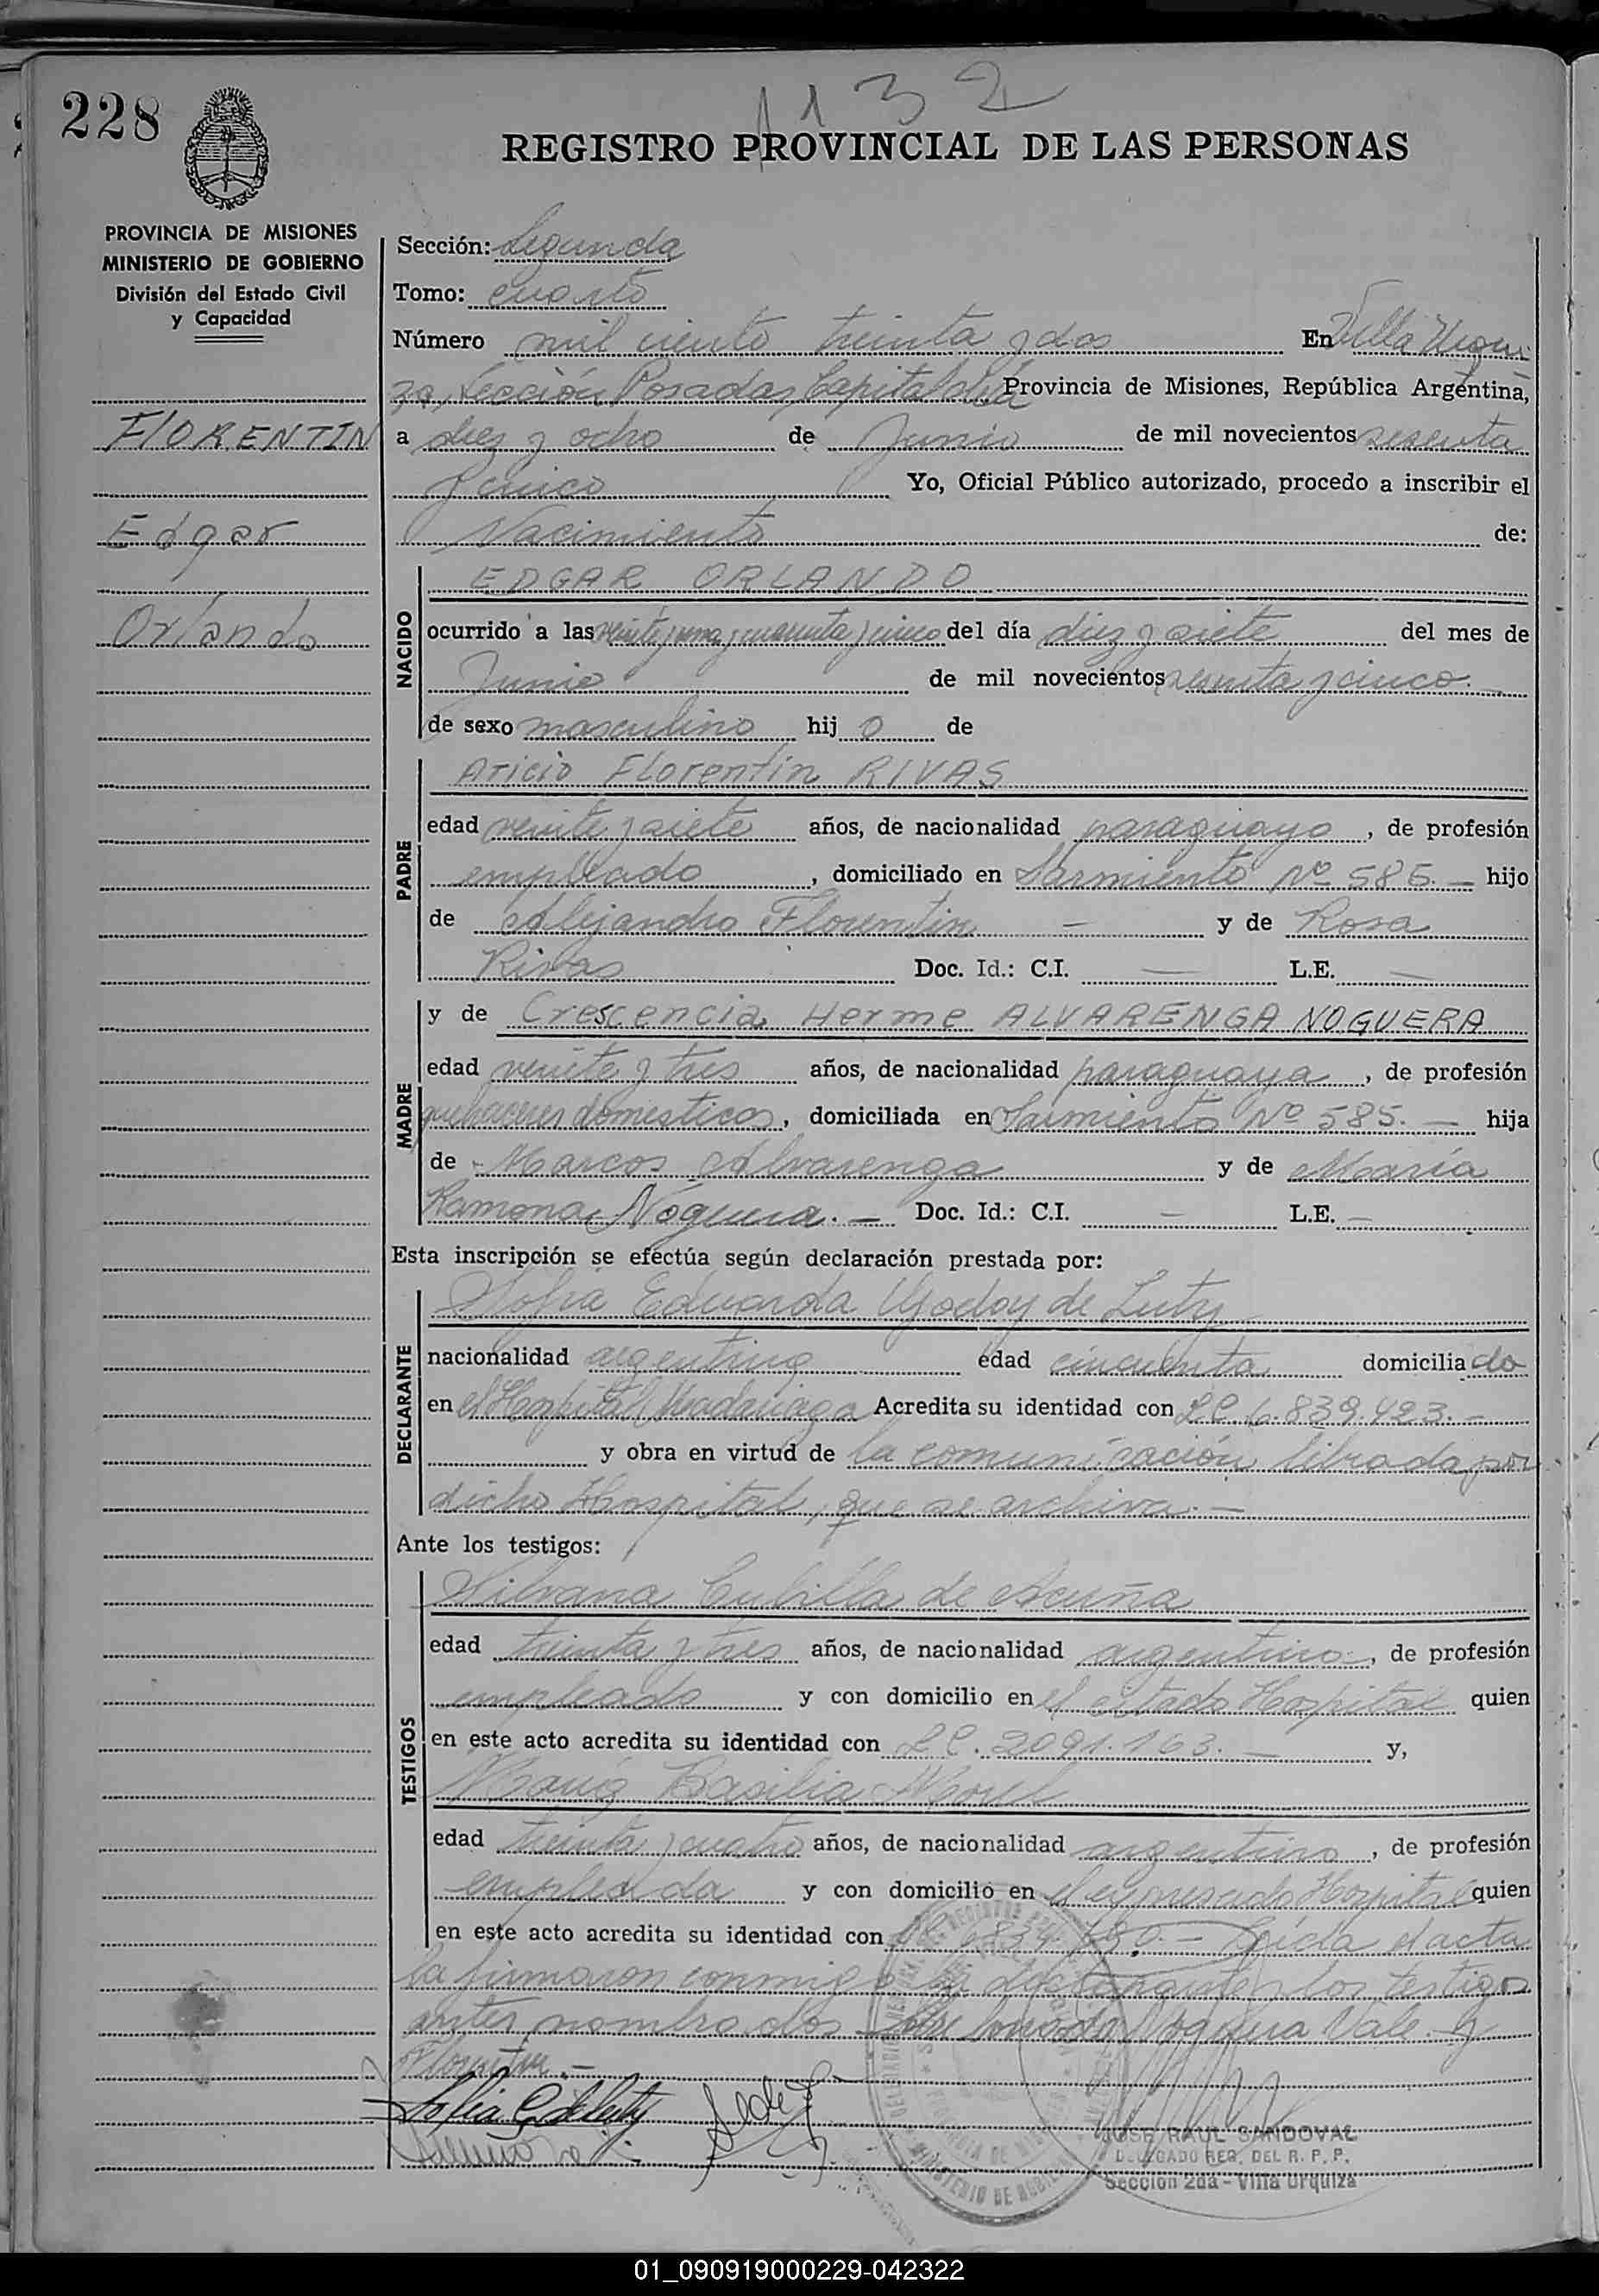 228
1132
REGISTRO PROVINCIAL DE LAS PERSONAS
PROVINCIA DE MISIONES
MINISTERIO DE GOBIERNO
División del Estado Civil
y Capacidad
FLORENTIN
Edgar
Orlando
Sección: Segunda
Tomo: cuarto
Número mil ciento treinta y dos En Villa Urqui
za, Sección Posadas, Capital de la Provincia de Misiones, República Argentina,
a diez y ocho de Junio de mil novecientos sesenta
y cinco Yo, Oficial Público autorizado, procedo a inscribir el
Nacimiento de:
NACIDO
EDGAR ORLANDO
ocurrido a las veinte y una y cuarenta y cinco del día diez y siete del mes de
Junio de mil novecientos sesenta y cinco.—
de sexo masculino hij o de
PADRE
Aricio Florentín RIVAS
edad veinte y siete años, de nacionalidad paraguayo, de profesión
empleado, domiciliado en Sarmiento Nº 585.— hijo
de Alejandro Florentin — y de Rosa
Rivas Doc. Id.: C.I. — L.E. —
MADRE
y de Crescencia Herme ALVARENGA NOGUERA
edad veinte y tres años, de nacionalidad paraguaya, de profesión
quehaceres domesticos, domiciliada en Sarmiento Nº 585.— hija
de Marcos Alvarenga y de María
Ramona Noguera.— Doc. Id.: C.I. — L.E. —
Esta inscripción se efectúa según declaración prestada por:
DECLARANTE
Sofia Eduarda Godoy de Luty
nacionalidad argentina edad cincuenta domicilia da
en el Hospital Madariaga Acredita su identidad con LC 6.839.423.—
y obra en virtud de la comunicación librada por
dicho Hospital, que se archiva.—
Ante los testigos:
TESTIGOS
Silvana Cubilla de Acuña
edad treinta y tres años, de nacionalidad argentina, de profesión
empleada y con domicilio en el citado Hospital quien
en este acto acredita su identidad con LC. 2091.163.— y,
María Basilia Morel
edad treinta y cuatro años, de nacionalidad argentina, de profesión
empleada y con domicilio en el expresado Hospital quien
en este acto acredita su identidad con LC 6834.780.— Leída el acta
la firmaron conmigo la declarante y los testigos
antes nombrados. Vale.
Florentin.—
Sofia G de Luty
JOSE RAUL SANDOVAL
DELEGADO REG. DEL R. P. P.
Sección 2da - Villa Urquiza
01_090919000229-042322